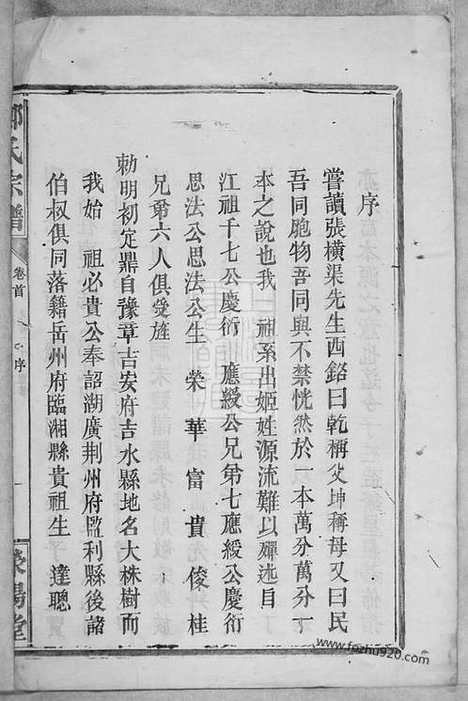 序
嘗讀張橫渠先生西銘曰乾稱父坤稱母又曰民
吾同胞物吾同與不禁恍然於一本萬分萬分一
本之說也我 祖系出姬姓源流難以殫述自
江祖千七公慶衍 應綬公兄弟七應綬公慶衍
思法公思法公生 榮 華 富 貴 俊 桂
兄弟六人俱受旌
勅明初定鼎自豫章吉安府吉水縣地名大株樹而
我始 祖必貴公奉詔湖廣荆州府監利縣後諸
伯叔俱同落籍岳州府臨湘縣貴祖生 達聰
氏宗譜
卷首
序
滎陽堂
www.fozhu920.com